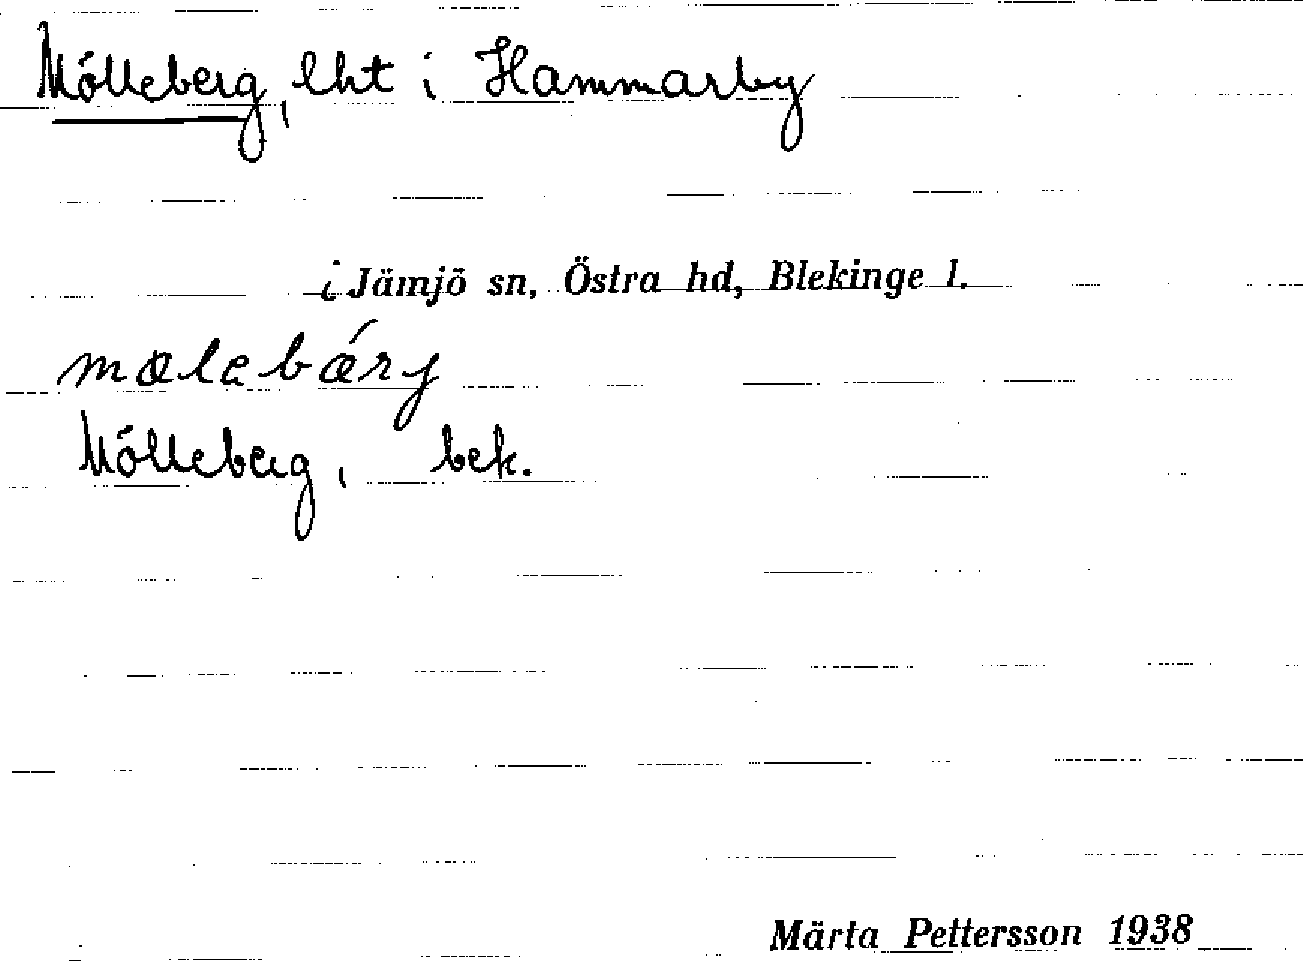 Mölleberg, lht i Hammarby
i Jämjö sn, Östra hd, Blekinge l.
mœlebǽrj
Mölleberg, bek.
Märta Pettersson 1938